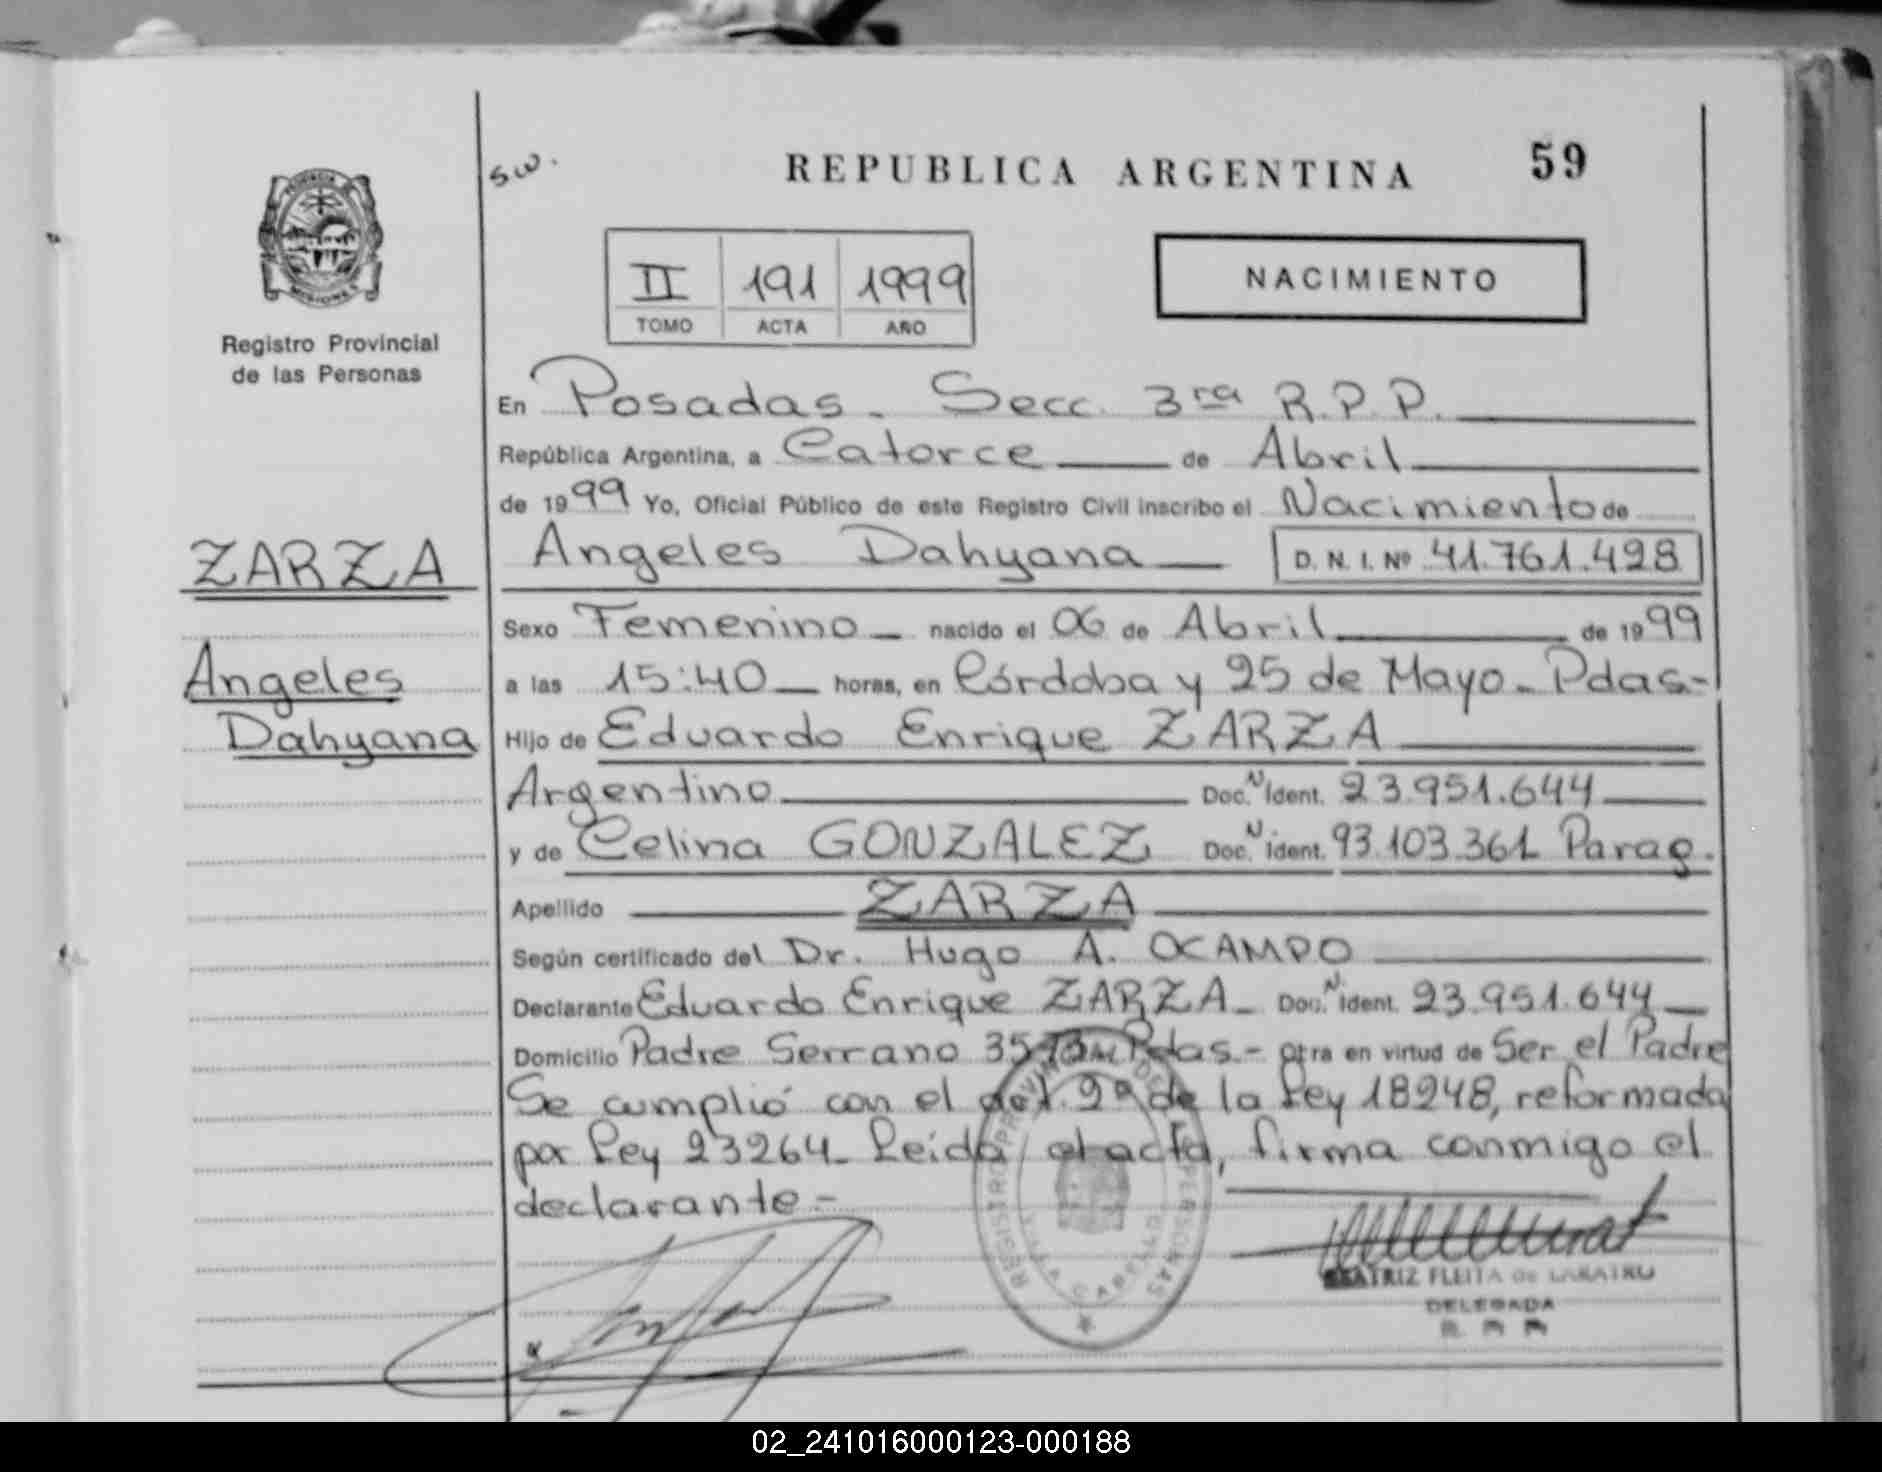 sw.
REPUBLICA ARGENTINA 59
PROVINCIA DE
MISIONES
Registro Provincial
de las Personas
II 191 1999
TOMO ACTA AÑO
NACIMIENTO
En Posadas. Secc. 3ra R.P.P.
República Argentina, a Catorce de Abril
de 1999 Yo, Oficial Público de este Registro Civil inscribo el Nacimiento de
ZARZA Angeles Dahyana D. N. I. Nº 41.761.428
Sexo Femenino nacido el 06 de Abril de 1999
Angeles a las 15:40 horas, en Córdoba y 25 de Mayo. Pdas-
Dahyana Hijo de Eduardo Enrique ZARZA
Argentino Doc. N Ident. 23.951.644
y de Celina GONZALEZ Doc. N Ident. 93.103.361 Parag.
Apellido ZARZA
Según certificado del Dr. Hugo A. OCAMPO
Declarante Eduardo Enrique ZARZA Doc. N Ident. 23.951.644
Domicilio Padre Serrano Pdas.- otra en virtud de Ser el Padre
Se cumplió con el art. 2º de la Ley 18248, reformada
por Ley 23264. Leída el acta, firma conmigo el
declarante-
REGISTRO PROVINCIAL DE LAS PERSONAS
VILLA CABELLO
BEATRIZ FLEITA de
DELEGADA
02_241016000123-000188